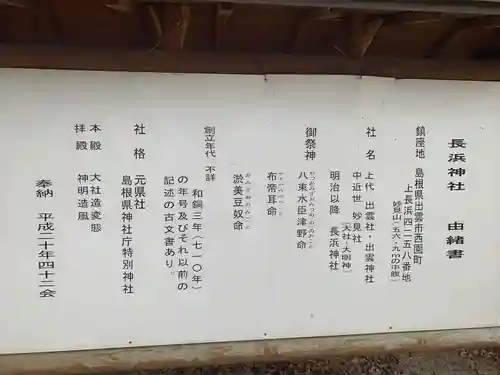 長浜神社 由緒書
鎮座地 島根県出雲市西園町
上長浜四二五八番地
妙見山(五六・九mの中腹)
社名 上代 出雲社・出雲神社
中近世 妙見社
(大社・大明神)
明治以降 長浜神社
御祭神 八束水臣津野命
やつかみずおみつのみこと
布帝耳命
淤美豆奴命
おみずぬのみこと
創立年代 不詳
和銅三年(七一〇年)
の年号及びそれ以前の
記述の古文書あり。
社格 元県社
島根県神社庁特別神社
本殿 大社造変態
拝殿 神明造風
奉納 平成二十年四十二会